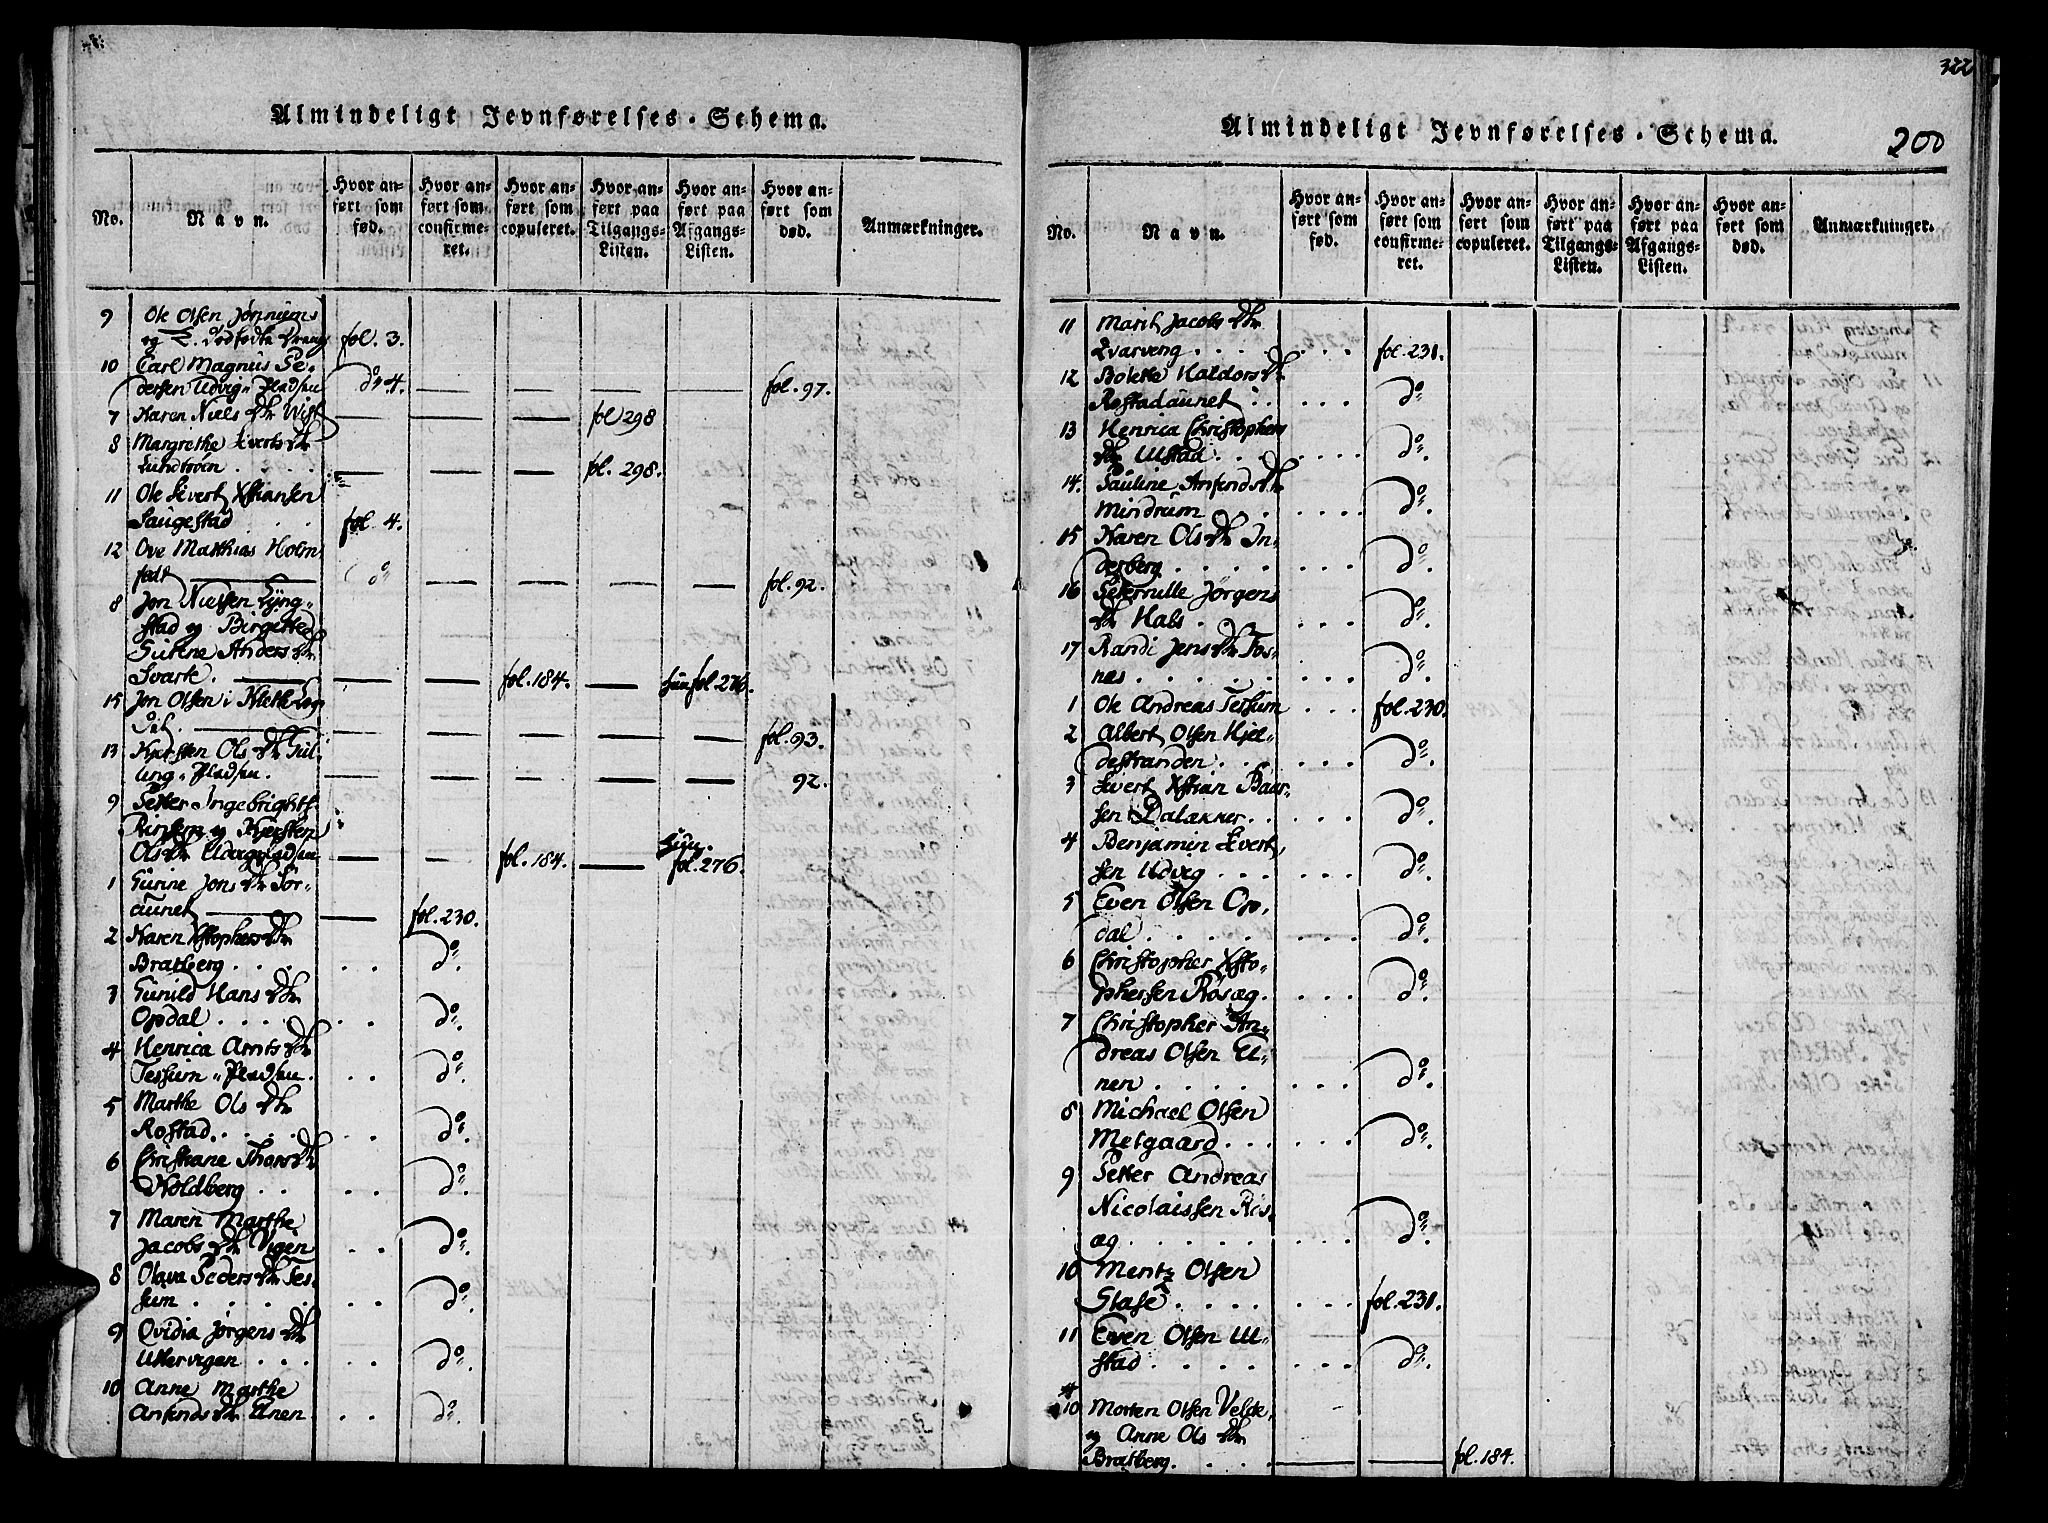 Almindeligt Jevnførelses-Schema.
No.
Navn.
Hvor an=
ført som
fød.
Hvor an=
ført som
confirme=
ret.
Hvor an=
ført som
copuleret.
Hvor an=
ført paa
Tilgangs=
Listen.
Hvor an=
ført paa
Afgangs=
Listen.
Hvor an=
ført som
død.
Anmærkninger.
9 Ole Olsen Jørnums
og E. dødfødte Dreng fol. 3.
10 Carl Magnus Pe-
dersen Udvig-Pladsen do 4. — — — — fol. 97.
7 Karen Niels Dtr Wist — — — fol 298
8 Margrethe Siverts Dtr
Lundsven . . . . — — — fol. 298.
11 Ole Sivert Xstiansen
Saugestad . . fol. 4.
12 Ove Mathias Holm
født — do — — — — fol. 92.
8 Jon Nielsen Lyng-
stad og Birgitte
Gurine Anders Dtr
Svarte. — — — fol. 184. — hun fol. 276.
15 Jon Olsen i Klete Leg-
Sil. — — — — — — fol. 93.
13 Kjersten Ols Dtr Gul-
ling-Pladsen. — — — — — 92.
9 Petter Ingebrights.
og Kjersten
Ols Dtr Udvigpladsen — — fol. 184. — hun. fol. 276.
1 Gurine Jons Dtr Sør-
aunet — — fol. 230.
2 Karen Xstophers Dtr
Bratberg . . . . . . do.
3 Gunild Hans Dtr
Opdal . . . . . . do.
4 Henrica Arnts Dtr
Tessum-Pladsen. . . do.
5 Marthe Ols Dtr
Rostad. . . . . . . do.
6 Christiane Thors Dtr
Koldberg . . . . do.
7 Maren Marthe
Jacobs Dtr Vigen . . do.
8 Olava Peders Dtr Tes-
sum . . . . . . do.
9 Ovidia Jørgens Dtr
Uttervigen . . . . . do.
10 Anne Marthe
Anfinds Dtr Einen . . . do.
322
Almindeligt Jevnførelses-Schema. 200
No.
Navn.
Hvor an=
ført som
fød.
Hvor an=
ført som
confirme=
ret.
Hvor an=
ført som
copuleret.
Hvor an=
ført paa
Tilgangs=
Listen.
Hvor an=
ført paa
Afgangs=
Listen.
Hvor an=
ført som
død.
Anmærkninger.
11 Marit Jacobs Dtr
Qvarveng . . . . . . . fol. 231.
12 Bolette Haldors Dtr
Rostadaunet . . . . . do
13 Henrica Christophers
Dtr Ulstad . . . . . . . do.
14. Pauline Anfinds Dtr
Mindrum . . . . . . do.
15 Karen Ols Dtr In-
derberg . . . . . . . . do.
16 Petternille Jørgens
Dtr Hals . . . . . do.
17 Randi Jens Dtr Fos-
næs . . . . . . . . do.
1 Ole Andreas Tessum . . . fol. 230.
2 Albert Olsen Hjel-
destranden . . . . . . do.
3 Sivert Xstian Baar-
sen Dalækner . . . . . . do.
4 Benjamin Sivert-
sen Udvig . . . . . . do.
5 Even Olsen Op-
dal . . . . . . . . do.
6 Christopher Xsto-
phersen Røsæg. . . . do.
7 Christopher An-
dreas Olsen Ei-
nen . . . . . . . . do.
8 Michael Olsen
Melgaard . . . . . . do.
9 Petter Andreas
Nicolaissen Røs-
æg . . . . . . . . do.
10 Mentz Olsen
Stafe . . . . . . . fol. 231.
11 Even Olsen Ul-
stad . . . . . . . do.
10 Morten Olsen Velde,
og Anne Ols Dtr
Bratberg. . . . — — fol. 184.